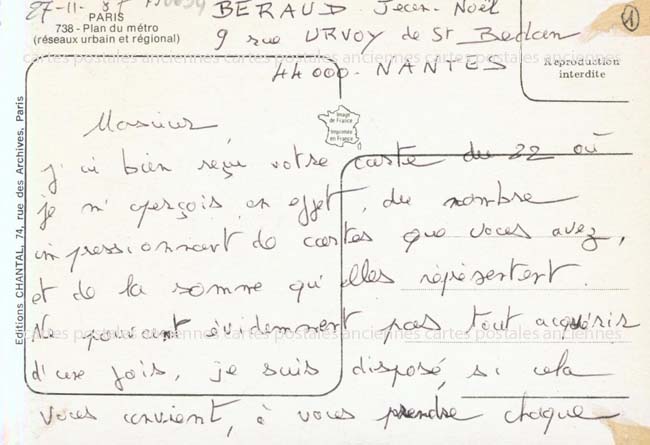 27-11-87
PARIS
738 - Plan du métro
(réseaux urbain et régional)
BERAUD Jean-Noël
9 rue URVOY de St Bedan
44000 - NANTES
1
Reproduction
interdite
cartes postales anciennes cartes postales anciennes cartes postales anciennes
Image
de France
Imprimée
en France
Editions CHANTAL, 74, rue des Archives, Paris
Monsieur
j'ai bien reçu votre carte du 22 où
je m'aperçois, en effet, du nombre
impressionnant de cartes que vous avez,
et de la somme qu'elles représentent.
Ne pouvant évidemment pas tout acquérir
cartes postales anciennes cartes postales anciennes cartes postales anciennes
d'une fois, je suis disposé, si cela
vous convient, à vous prendre chaque